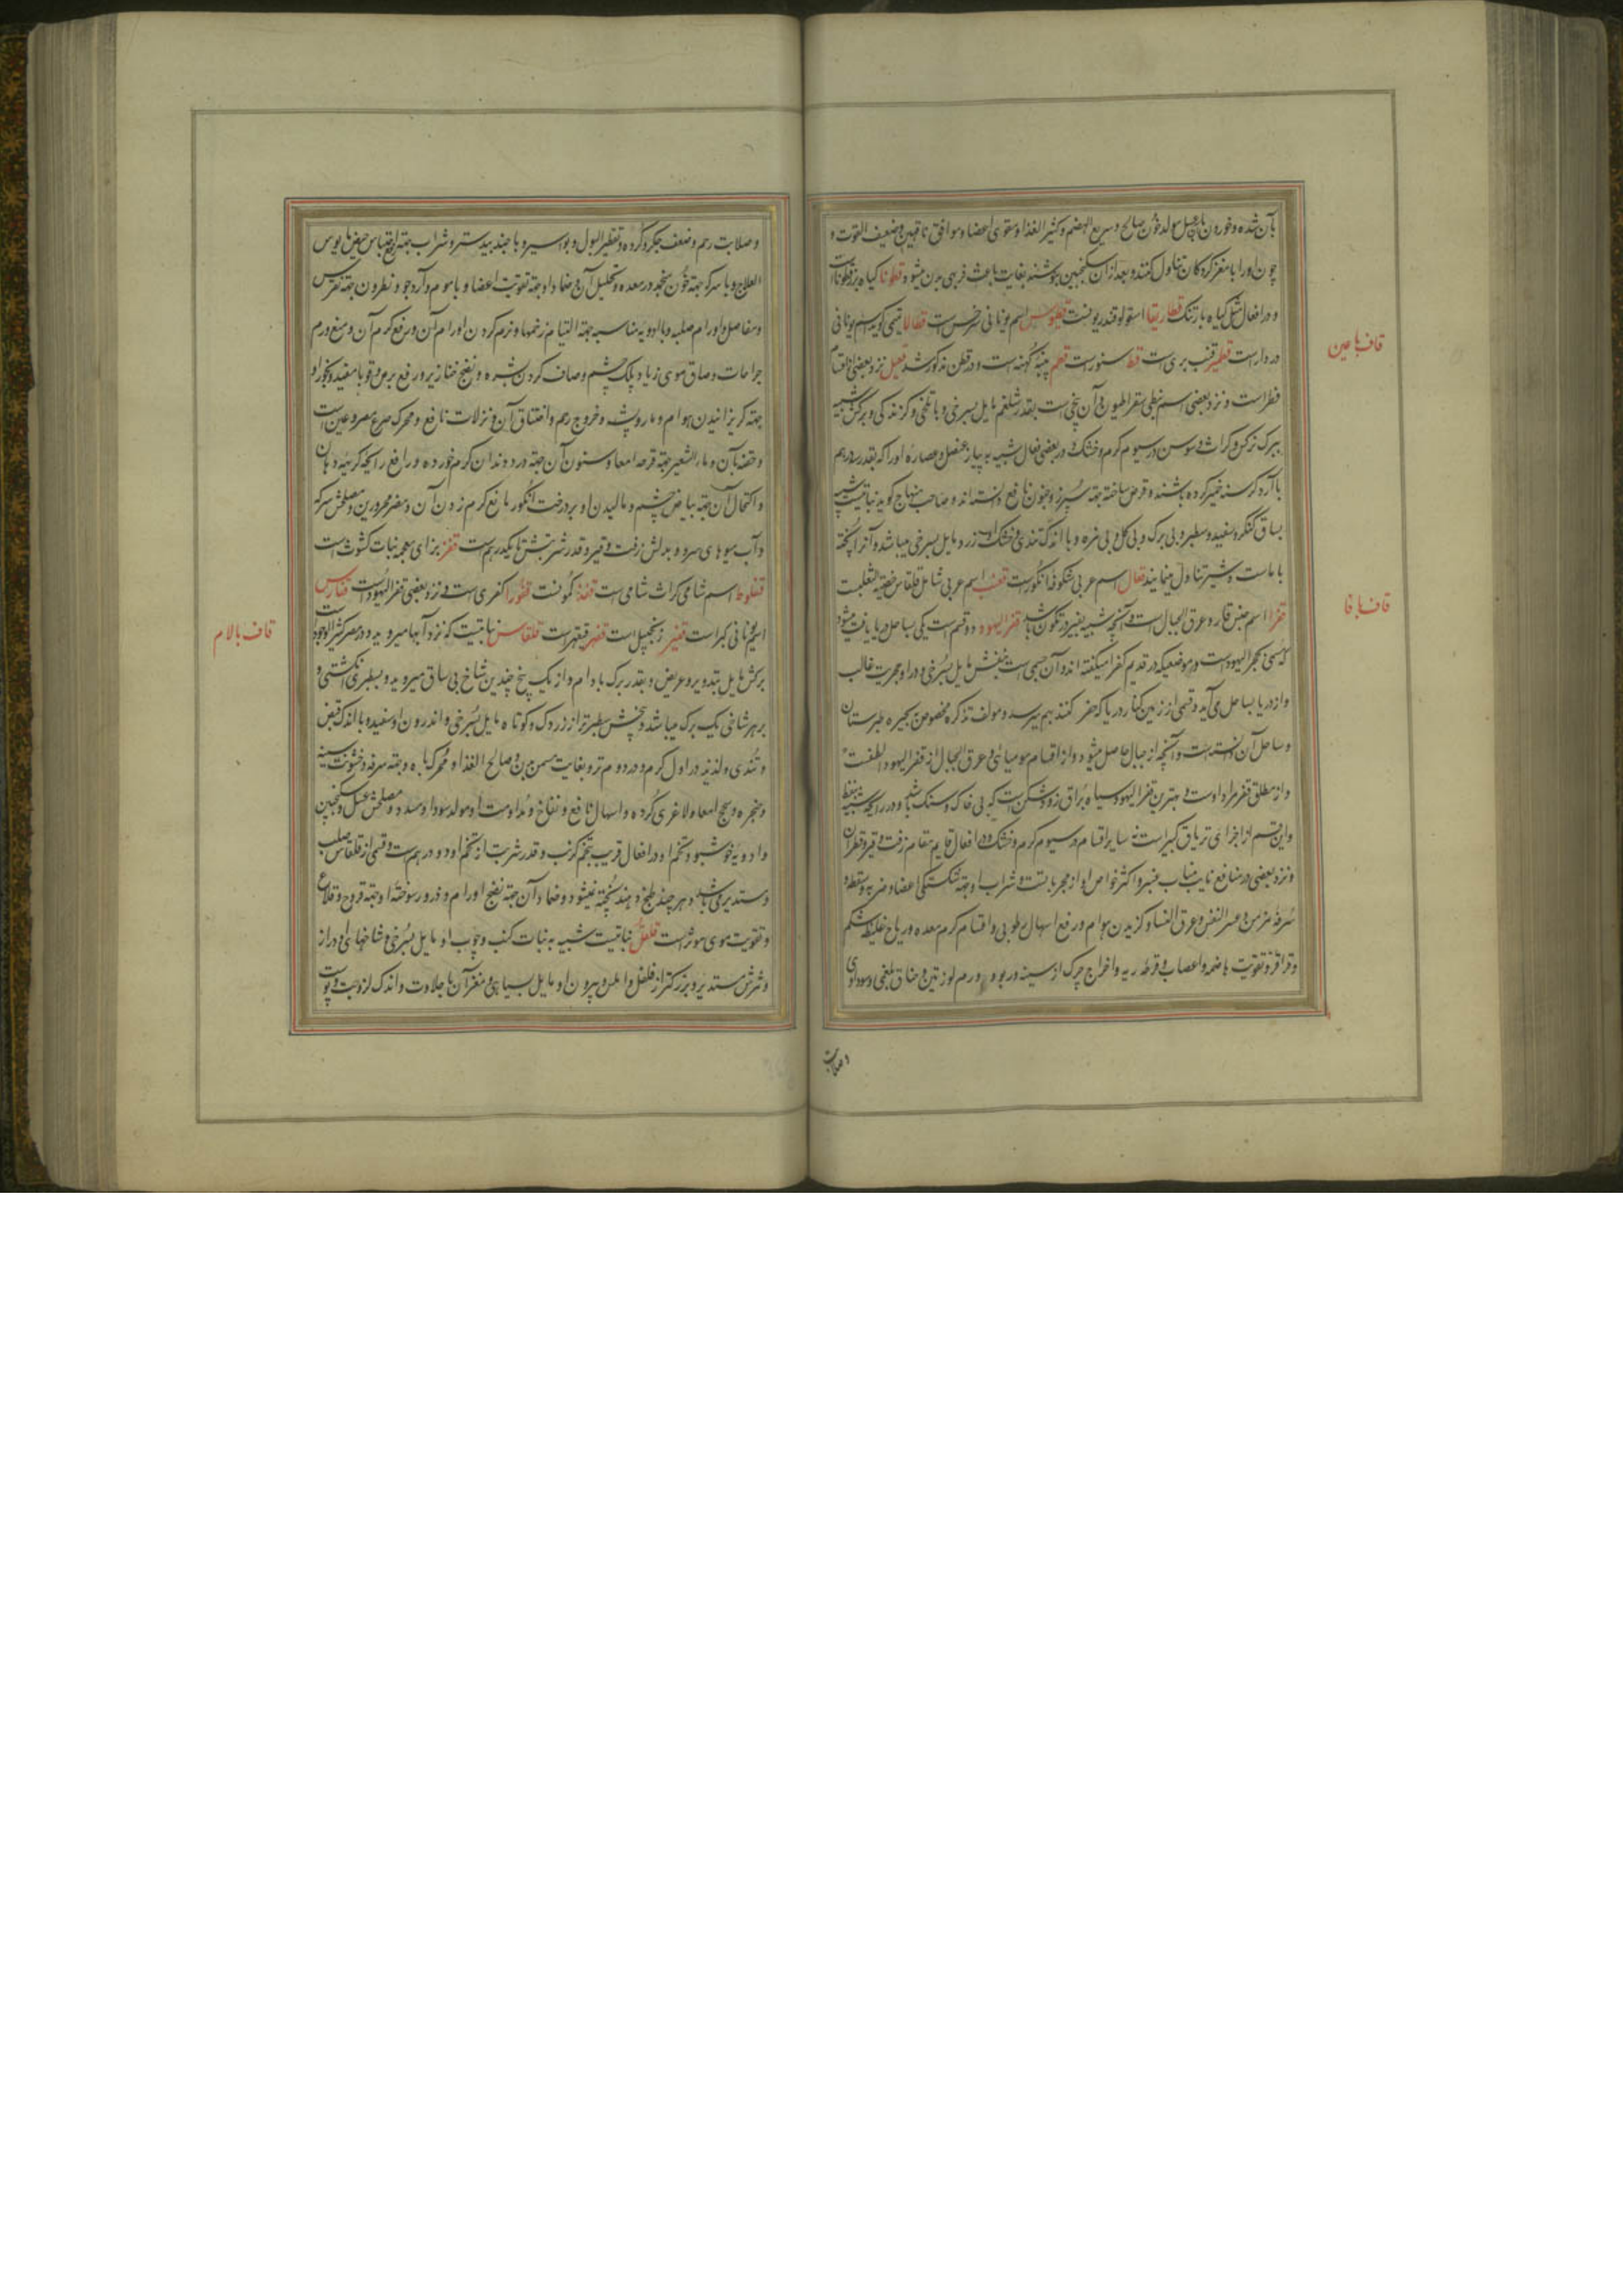 بآن شده و خوردن ناچیل مولد خون صالح و سریع الهضم و کثیر الغذا و مقوی اعضا و موافق ناقهین و ضعیف القوت و
چون او را با مغز گردکان تناول کنند و بعد از آن سکنجبین بنوشند بغایت باعث فربهی بدن میشود قطونا گیاه بزر قطوناست
و در افعال مثل گیاه بارتنک قطاریقا اسقولوقندریونست قطیوس اسم یونانی سرخس است قطالا قمی گوید اسم یونانی
دردار است قطیر قنب بری است قط سنور است قطم پنبه کهنه است و در قطن مذکور شد قعبل نزد بعضی از اقسام
فطر است و نزد بعضی اسم نبطی سقراطیون و آن بیخی است بقدر شلغم مایل بسرخی و با تلخی و گزندگی و برگش شبیه
ببرک نرکس و کراث و سوسن در سیوم گرم و خشک و در بعضی افعال شبیه به پیاز عنصل و عصاره او را که بقدر سه درهم
با آرد کرسنه خمیر کرده باشند و قرص ساخته جهة سپرز و جنون نافع دانسته اند و صاحب منهاج گوید نباتیست شبیه
بساق کنگر و سفید و سطبر و بی برک و بی گل و بی مزه و با اندک تندی و خشک او زرد مایل بسرخی میباشد و آنرا پخته
با ماست و شیر تناول مینمایند قعال اسم عربی شکوفه انگور است قعنب اسم عربی شامل قلقاس خصیة الثعلب است
قفرا اسم جنس قار و عرق الجبال است و آنچه شبیه بقیر در تکون باشد قفر الیهود دو قسم است یکی بساحل دریا یافت میشود
که مسمی بحجر الیهود است و موضعیکه در قدیم کفرا میگفته اند و آن جسمی است بنفش مایل بسرخی و در او حجریت غالب
و از دریا بساحل می آید و قسمی از زمین کنار دریا که حفر کنند بهم میرسد و مولف تذکره مخصوص بحیره طبرستان
و ساحل آن دانسته است و آنچه از جبال حاصل میشود و از اقسام مومیائی و عرق الجبال از قفر الیهود الطفست
و از مطلق قفر مراد اوست و بهترین قفر الیهود سیاه براق زود شکن است که بی خاک و سنک باشد و در رایحه شبیه بنفط
و این قسم از اجزای تریاق کبیر است نه سایر اقسام در سیوم گرم و خشک و در افعال قایم مقام زفت و قیر و قطران
و نزد بعضی در منافع نایب مناب عنبر و اکثر خواص او از مجربا بتست و شراب او جهة شکستگی اعضا و ضربه و سقطه و
سرفه مزمن و عسر النفس و عرق النسا و گزیدن هوام و رفع اسهال رطوبی و اقسام گرم معده و ریاح غلیظ شکم
و قراقر و تقویت هاضمه و اعصاب و قرحه ریه و اخراج چرک از سینه و ربو و ورم لوزتین و خناق بلغمی و سوداوی
وصلابت
قاف با عین
قاف با فا
و صلابت رحم و ضعف جگر و گرده و تقطیر البول و بواسیر و با جندبیدستر و شراب جهة احتباس حیض مایوس
العلاج و با سرکه جهة خون منجمد در معده و تحلیل آن و ضماد او جهة تقویت اعضا و با موم و آرد جو و نطرون جهة نقرس
و مفاصل و اورام صلبه و با ادویه مناسبه جهة التیام زخمها و نرم کردن اورام آن و رفع کرم آن و منع ورم
جراحات و الصاق موی زیاد پلک چشم و صاف کردن بشره و نضج خنازیر و رفع برص و قوبا مفید و بخور او
جهة گریزانیدن هوام و مار و پشه و خروج رحم و اختناق آن و نزلات نافع و محرک صرع مصروعین است
و حقنه بآن و ماء الشعیر جهة قرحه امعا و سنون آن جهة درد دندان کرم خورده و رافع رایحه کریه دهان
و اکتحال آن جهة بیاض چشم و مالیدن او بر درخت انگور مانع کرم زدن آن و مضر محرورین و مصلحش سرکه
و آب میوهای سرد و بدلش زفت و قیر و قدر شربتش تا یکدرهم است قفز بزای معجمه نبات کشوث است
قفلوط اسم شامی کراث شامی است قفة کمونست قفورا کفری است و نزد بعضی قفر الیهود است قفارس
اسم یونانی کبر است قفیر زنجبیل است قفهر قیقهر است قلقاس نباتیست که نزد آبها میروید و در مصر کثیر الوجود است
برکش مایل بتدویر و عریض و بقدر برک بادام و از یک بیخ چندین شاخ بی ساق میروید و بسطبری انگشتی و
بر هر شاخی یک برک میباشد و بیخش سطبرتر از زردک و کوتاه مایل بسرخی و اندرون او سفید و با اندک قبض
و تندی و لذیذ در اول گرم و در دوم تر و بغایت مسمن بدن و صالح الغذا و محرک باه و جهة سرفه و خشونت سینه
و حنجره و سحج امعا و لاغری گرده و اسهال نافع و نفاخ و مداومت او مولد سودا و سدد و مصلحش عسل و سکنجبین
و ادویه خوشبو و تخم او در افعال قریب بتخم کرنب و قدر شربت از تخم او دو درهم است و قسمی از قلقاس صلب
و مستدیر میباشد و هر چند طبخ دهند پخته نمیشود و ضماد آن جهة نضج اورام و ذرور سوخته او جهة قروح و قلاع
و تقویت موی موثر است قلقل نباتیست شبیه به نبات کنب و چوب او مایل بسرخی و شاخهای او دراز
و ثمرش مستدیر و بزرکتر از فلفل و املس و بیرون او مایل بسیاهی و مغز آن با حلاوت و اندک لزوجت و پوست
قاف با لام